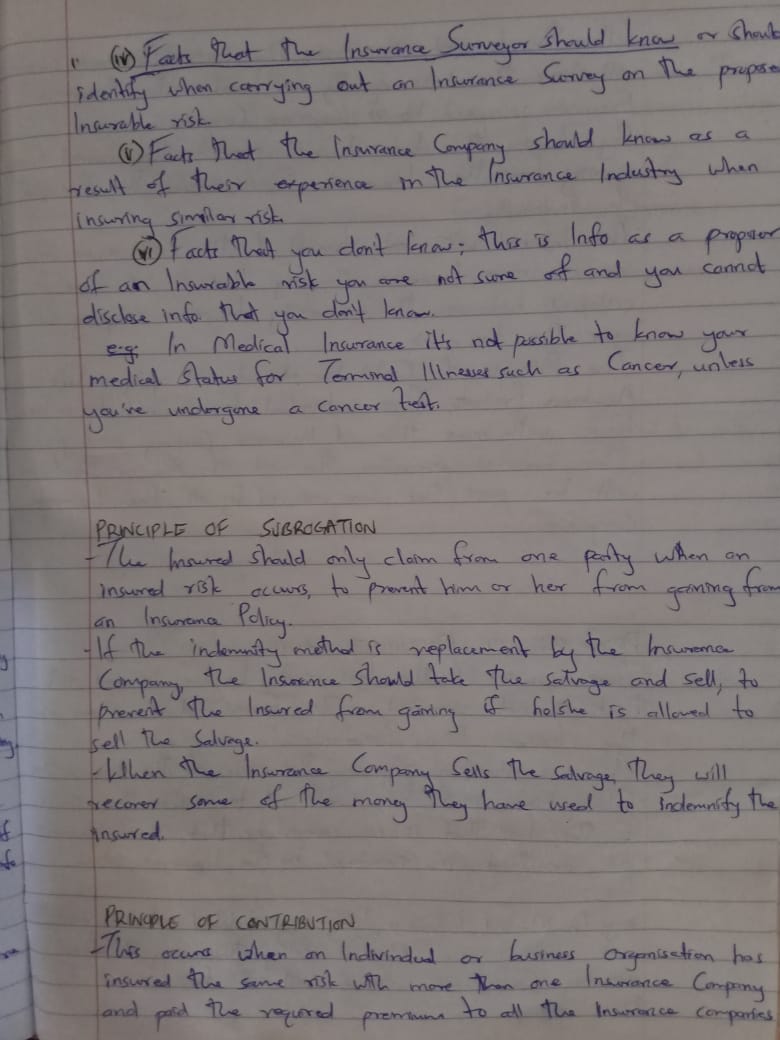 (iv) Facts that the Insurance Surveyor should know or should
identify when carrying out an Insurance Survey on the propose
Insurable risk.
(v) Facts that the Insurance Company should know as a
result of their experience in the Insurance Industry when
insuring similar risk.
(vi) Facts that you don't know; this is Info as a proposer
of an Insurable risk you are not sure of and you cannot
disclose info. that you don't know.
e.g. In Medical Insurance it's not possible to know your
medical status for Terminal Illnesses such as Cancer, unless
you've undergone a cancer test.
PRINCIPLE OF SUBROGATION
- The Insured should only claim from one party when an
insured risk occurs, to prevent him or her from gaining from
an Insurance Policy.
- If the indemnity method is replacement by the Insurance
Company, the Insurance should take the salvage and sell, to
prevent the Insured from gaining if he/she is allowed to
sell the salvage.
- When the Insurance Company sells the salvage, they will
recover some of the money they have used to indemnify the
insured.
PRINCIPLE OF CONTRIBUTION
- This occurs when an Individual or business organisation has
insured the same risk with more than one Insurance Company
and paid the required premium to all the Insurance companies